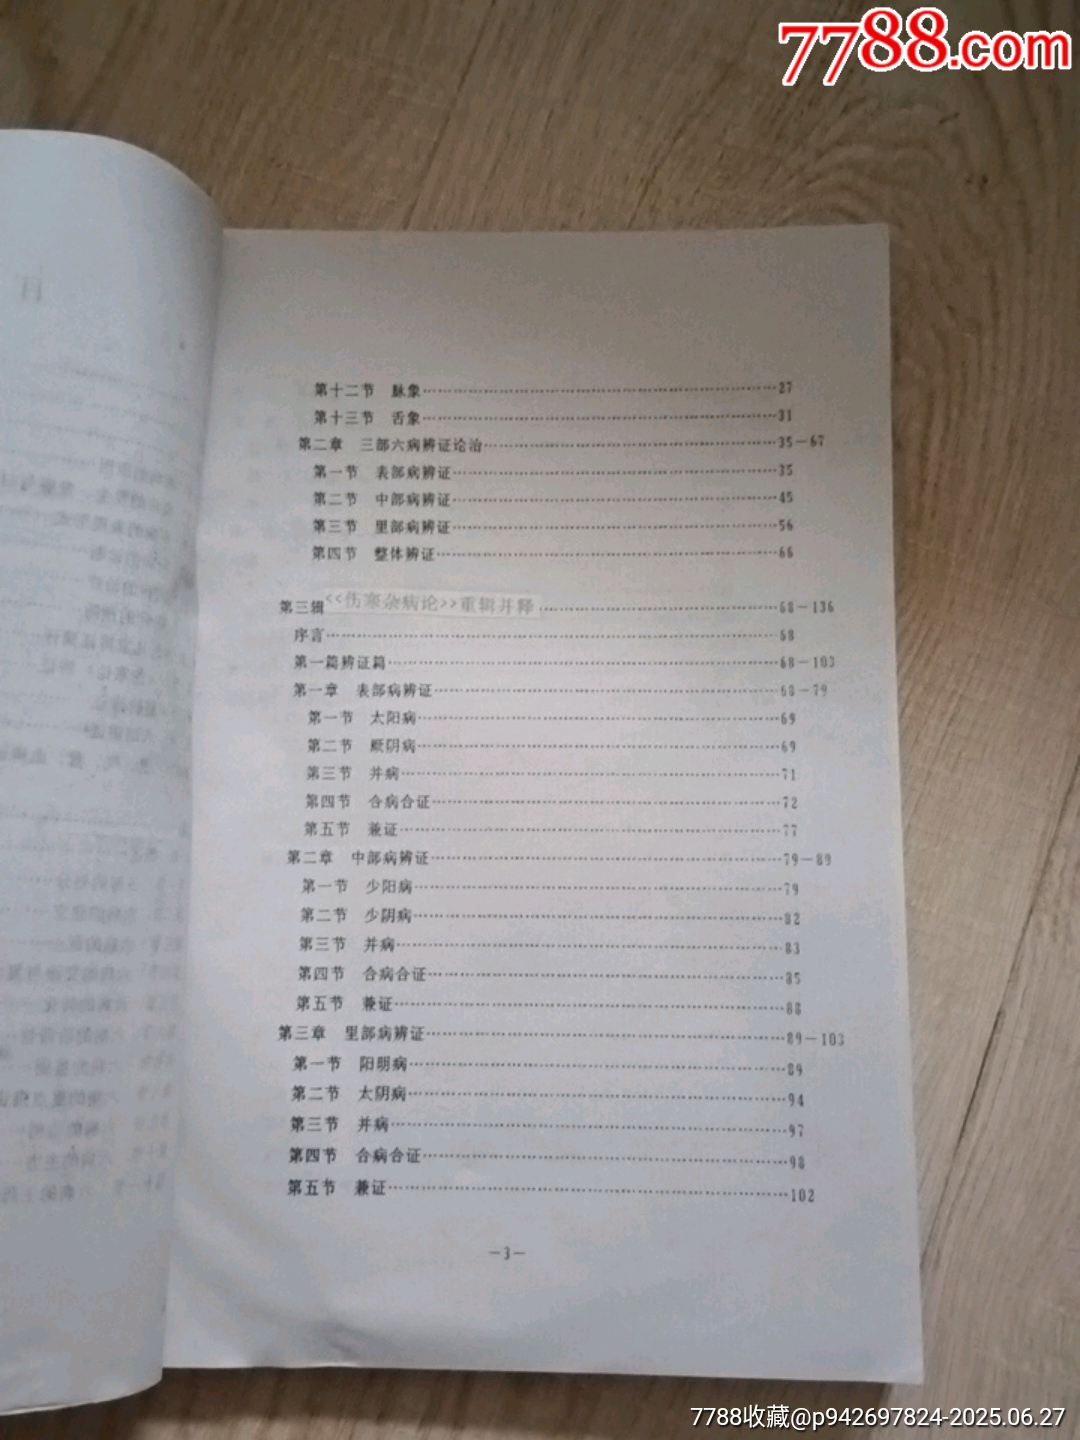 7788.com
目
第十二节 脉象……27
第十三节 舌象……31
第二章 三部六病辨证论治……35-67
第一节 表部病辨证……35
第二节 中部病辨证……45
第三节 里部病辨证……56
第四节 整体辨证……66
第三辑<<伤寒杂病论>>重辑并释……68-136
序言……68
第一篇辨证篇……68-103
第一章 表部病辨证……68-79
第一节 太阳病……69
第二节 厥阴病……69
第三节 并病……71
第四节 合病合证……72
第五节 兼证……77
第二章 中部病辨证……79-89
第一节 少阳病……79
第二节 少阴病……82
第三节 并病……83
第四节 合病合证……85
第五节 兼证……88
第三章 里部病辨证……89-103
第一节 阳明病……89
第二节 太阴病……94
第三节 并病……97
第四节 合病合证……98
第五节 兼证……102
-3-
7788收藏@p942697824-2025.06.27